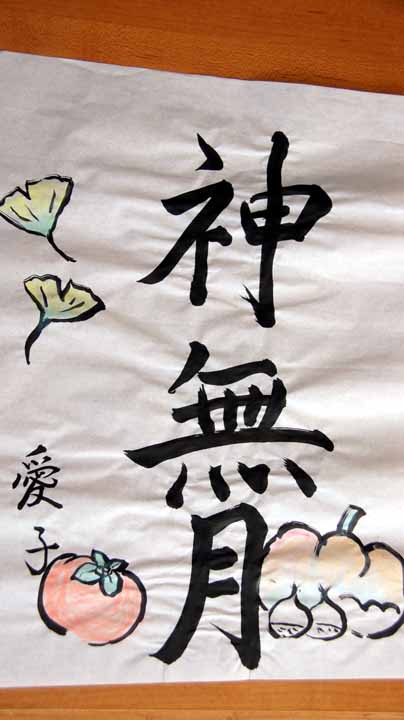 神無月
愛子